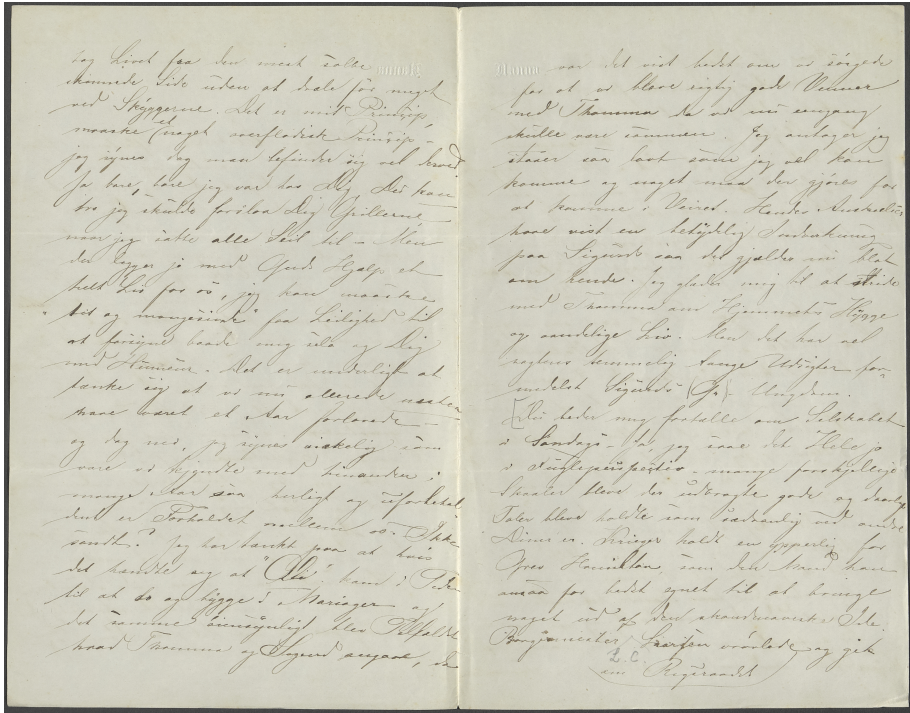 tag Livet fra den mest
side uden at dvæle for meget
ved Skyggerne. Det er mit Prinzip,
maaske et noget overflødigt Prinzip –
jeg synes dog man befinder sig vel hved
Ja bare, bare jeg var hos Dig, Du kan
tro jeg skulde forslaa Dig Grillerne
naar jeg satte alle Seil til – Men
der ligger jo med Guds Hjælp et
helt Liv for os, jeg kan maaske
"tit og mangesinde" faa Leilighed til
at forsyne baade mig selv og Dig
med Humeur. Det er underligt at
tænke sig at vi nu allerede næsten
have været et Aar forlovede –
og dog med, jeg synes virkelig som
vare vi kjendte med hinanden i
mange Aar saa herligt og
er Forholdet mellem os. Ikke
sandt? Jeg har tænkt paa at hvis
det hændte sig at kom i
til at bo og bygge i Mariager og
det samme blev Tilfældet
hvad Thomma og Sigurd angaar, da
var det vist bedst om vi sørgede
for at vi bleve rigtig gode Venner
med Thomma da vi nu engang
skulle være sammen. Jeg antager jeg
staaer saa lavt som jeg vel kan
komme og noget maa der gjøres for
at komme i Veiret. Hendes
have vist en betydelig Indvirkning
paa Sigurds saa det gjælder nu
om hende. Jeg glæder mig til at stride
med Thomma om Hjemmets Hygge
og aandelige Liv. Men det har vel
sagtens temmelig lange Udsigter for-
medelst Sigurds Ungdom.
[Du beder mig fortælle om Selskabet
i Søndags – ja, jeg saae det Hele jo
i Fugleperspectiv – mange forskjellige
Skaaler bleve der udbragte gode og daarlige
Taler bleve holdte som sædvanlig ved andre
Dineer. Krieger holdt en ypperlig for
Grev Hamilton, som den Mand han
ansaa for bedst egnet til at bringe
noget ud af den skandinaviske Ide.
Borgmester vrøvlede og gik
L.C.
om Rigsraadet